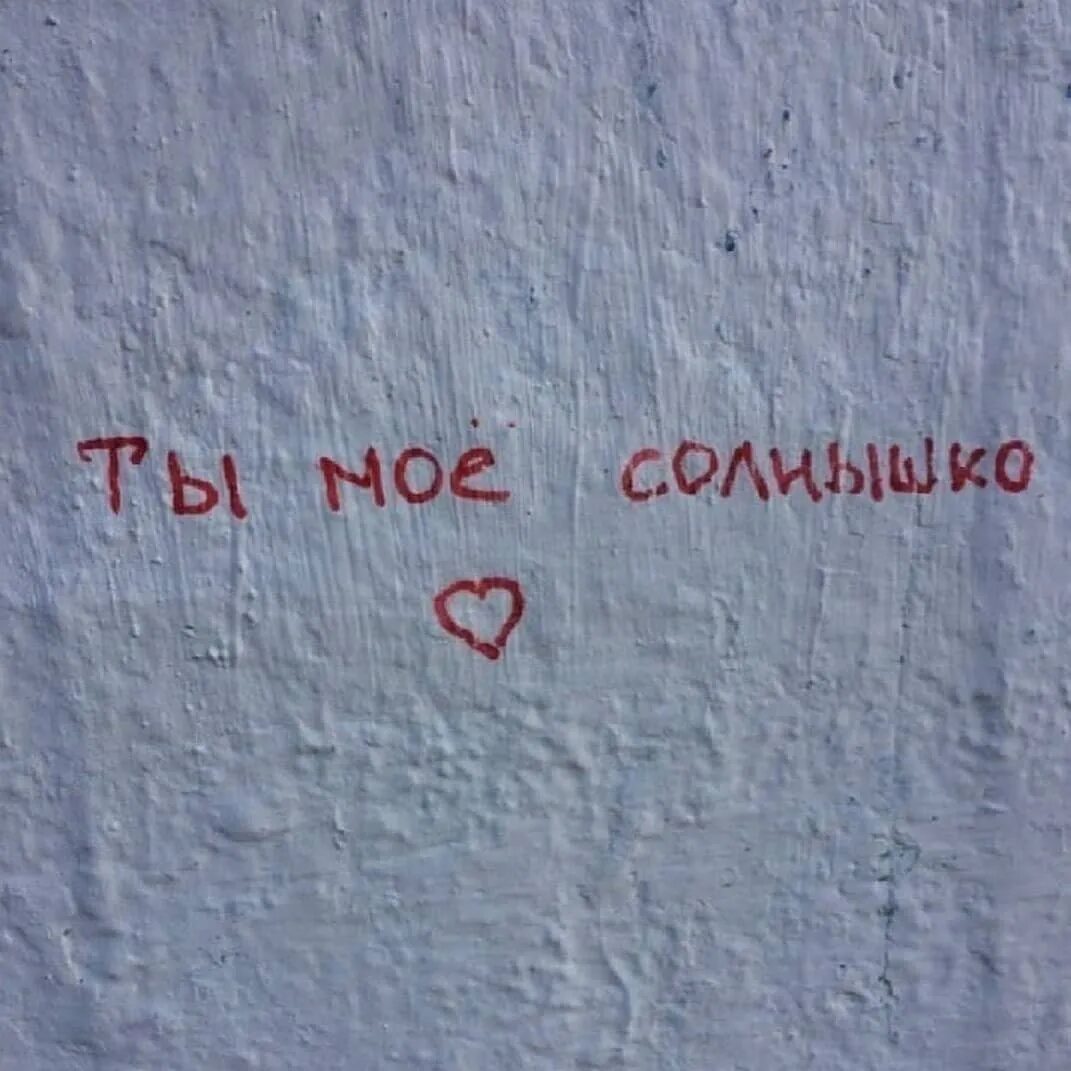 Ты моё солнышко